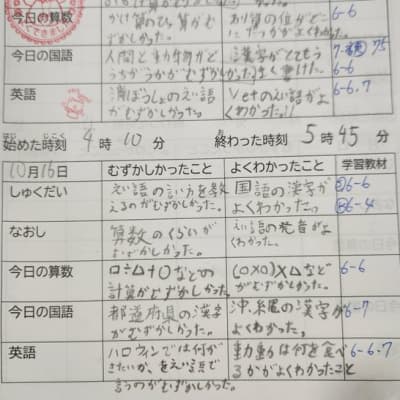 できました
今日の算数
かけ算のひっ算がむ
ずかしかった。
わり算の位がどこ
にたつかがよくわかった。
6-6
今日の国語
人間と動物がど
うちがうかがむずかしかった。
漢字がとてもう
まく書けた。
75
6-6
英語
消ぼうしょのえい語
がむずかしかった。
Vetのえい語がよ
くわかった。
6-6.7
始めた時刻 4時10分 終わった時刻 5時45分
10月16日 むずかしかったこと よくわかったこと 学習教材
しゅくだい
えい語の言い方を教
えるのがむずかしかった。
国語の漢字が
よくわかったっ
6-6
6-4
なおし
算数のくらいが
むずかしかった。
えい語の発音がよ
くわかった。
今日の算数
□÷△+○などの
計算がむずかしかった。
(○×□)×△など
がむずかしかった。
6-6
今日の国語
都道府県の漢字
がむずかしかった。
沖縄の漢字が
よくわかった。
6-7
英語
ハロウィンでは何が
きたいか、をえい語で
言うのがむずかしかった。
動動は何を食べ
るかがよくわかったこと
6-6.7